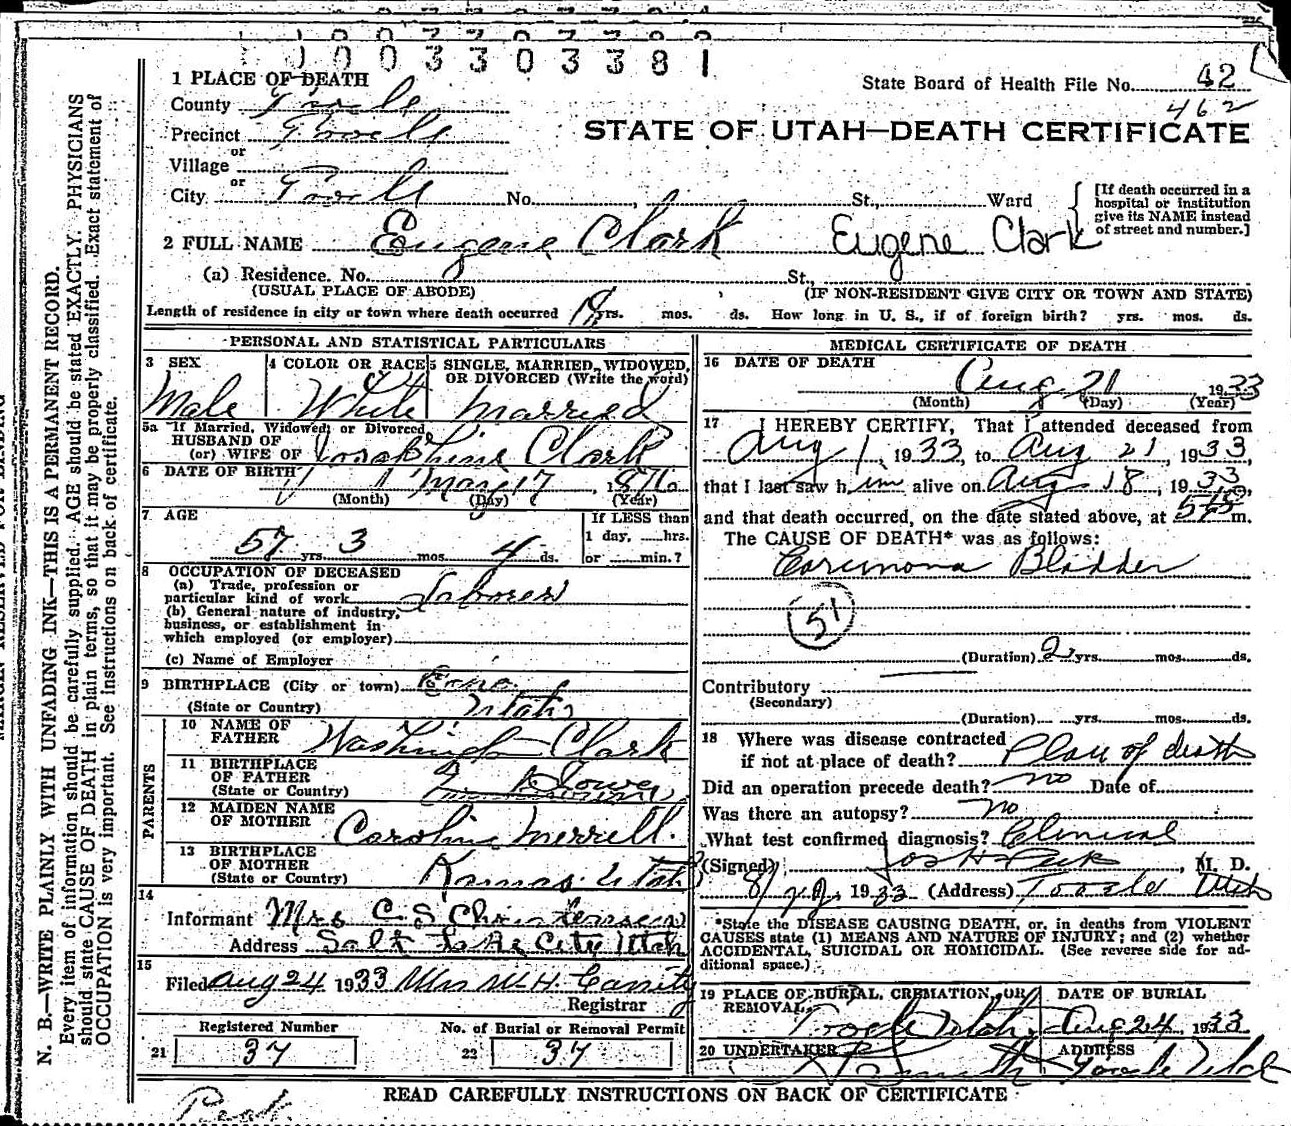 1 0 0 3 3 0 3 3 8 1
State Board of Health File No. 42
462
STATE OF UTAH—DEATH CERTIFICATE
1 PLACE OF DEATH
County Tooele
Precinct Tooele
or
Village
or
City Tooele No. , St., Ward
[If death occurred in a hospital or institution give its NAME instead of street and number.]
2 FULL NAME Eugene Clark Eugene Clark
(a) Residence. No. St.,
(USUAL PLACE OF ABODE) (IF NON-RESIDENT GIVE CITY OR TOWN AND STATE)
Length of residence in city or town where death occurred yrs. mos. ds. How long in U. S., if of foreign birth? yrs. mos. ds.
PERSONAL AND STATISTICAL PARTICULARS
3 SEX
Male
4 COLOR OR RACE
White
5 SINGLE, MARRIED, WIDOWED,
OR DIVORCED (Write the word)
Married
5a If Married, Widowed, or Divorced
HUSBAND OF
(or) WIFE OF Josephine Clark
6 DATE OF BIRTH May 17, 1876
(Month) (Day) (Year)
7 AGE
57 yrs. 3 mos. 4 ds.
If LESS than
1 day, hrs.
or min.?
8 OCCUPATION OF DECEASED
(a) Trade, profession or
particular kind of work Laborer
(b) General nature of industry,
business, or establishment in
which employed (or employer)
(c) Name of Employer
9 BIRTHPLACE (City or town) Echo
(State or Country) Utah
PARENTS
10 NAME OF
FATHER Washington Clark
11 BIRTHPLACE
OF FATHER
(State or Country) Iowa
12 MAIDEN NAME
OF MOTHER Caroline Merrell.
13 BIRTHPLACE
OF MOTHER
(State or Country) Kamas Utah
14
Informant Mrs C. S. Christensen
Address Salt Lake City Utah
15
Filed Aug 24 1933 Mrs W. H. Cassity
Registrar
Registered Number
21 37
No. of Burial or Removal Permit
22 37
MEDICAL CERTIFICATE OF DEATH
16 DATE OF DEATH
Aug. 21 1933
(Month) (Day) (Year)
17 I HEREBY CERTIFY, That I attended deceased from
Aug 1, 1933, to Aug 21, 1933,
that I last saw him alive on Aug 18, 1933,
and that death occurred, on the date stated above, at m.
The CAUSE OF DEATH* was as follows:
Carcinoma Bladder
51
(Duration) 2 yrs. mos. ds.
Contributory
(Secondary)
(Duration) yrs. mos. ds.
18 Where was disease contracted
if not at place of death? Place of death
Did an operation precede death? no Date of
Was there an autopsy? no
What test confirmed diagnosis? Clinical
(Signed) Jos H Peck, M. D.
1933 (Address) Tooele Utah
*State the DISEASE CAUSING DEATH, or, in deaths from VIOLENT
CAUSES state (1) MEANS AND NATURE OF INJURY; and (2) whether
ACCIDENTAL, SUICIDAL OR HOMICIDAL. (See reverse side for ad-
ditional space.)
19 PLACE OF BURIAL, CREMATION, OR
REMOVAL, Tooele Utah
DATE OF BURIAL
Aug 24, 1933
20 UNDERTAKER
ADDRESS
Tooele Utah
READ CAREFULLY INSTRUCTIONS ON BACK OF CERTIFICATE
Peck
N. B.—WRITE PLAINLY WITH UNFADING INK—THIS IS A PERMANENT RECORD.
Every item of information should be carefully supplied. AGE should be stated EXACTLY. PHYSICIANS
should state CAUSE OF DEATH in plain terms, so that it may be properly classified. Exact statement of
OCCUPATION is very important. See instructions on back of certificate.